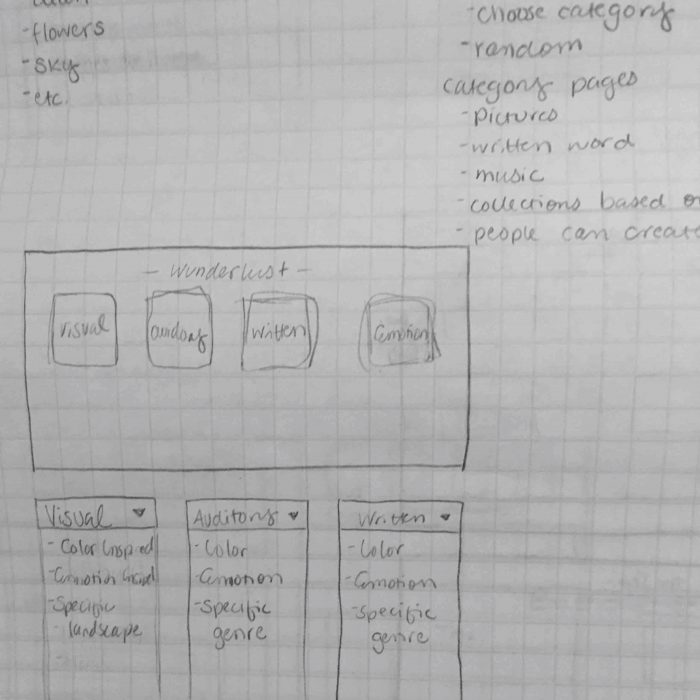 -flowers
-sky
-etc.
-choose category
-random
category pages
-pictures
-written word
-music
-collections based
-people can create
- Wunderlust -
Visual
auditory
Written
Emotion
Visual
- Color Inspired
-Emotion
-Specific
- landscape
Auditory
- Color
-Emotion
-Specific
genre
Written
- Color
-Emotion
-Specific
genre